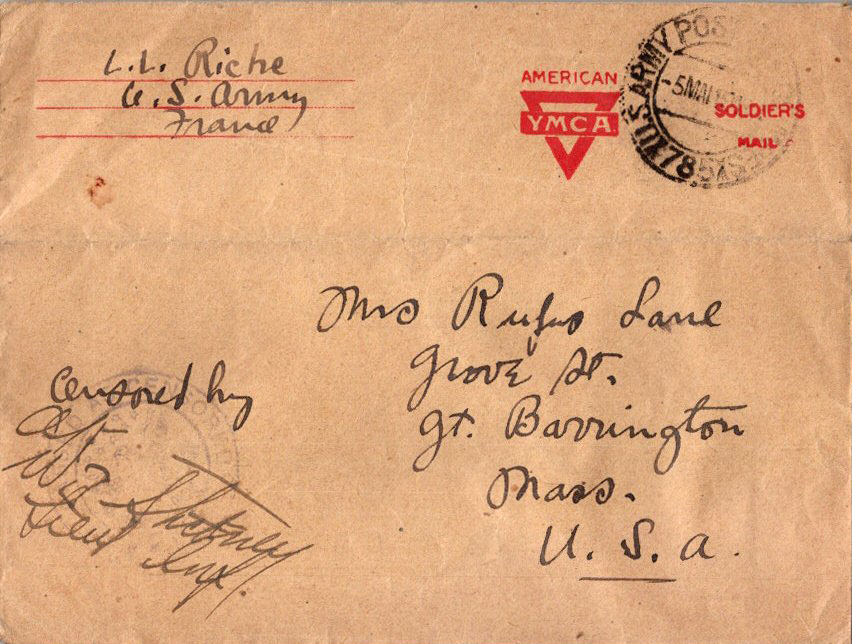 L.L. Riche
U.S. Army
France
AMERICAN
YMCA
U.S. ARMY POST
-5 MAI
SOLDIER'S
MAIL
785
Mrs Rufus Lane
Grove St.
Gt. Barrington
Mass.
U.S.A.
Censored by
Lieut Inf.